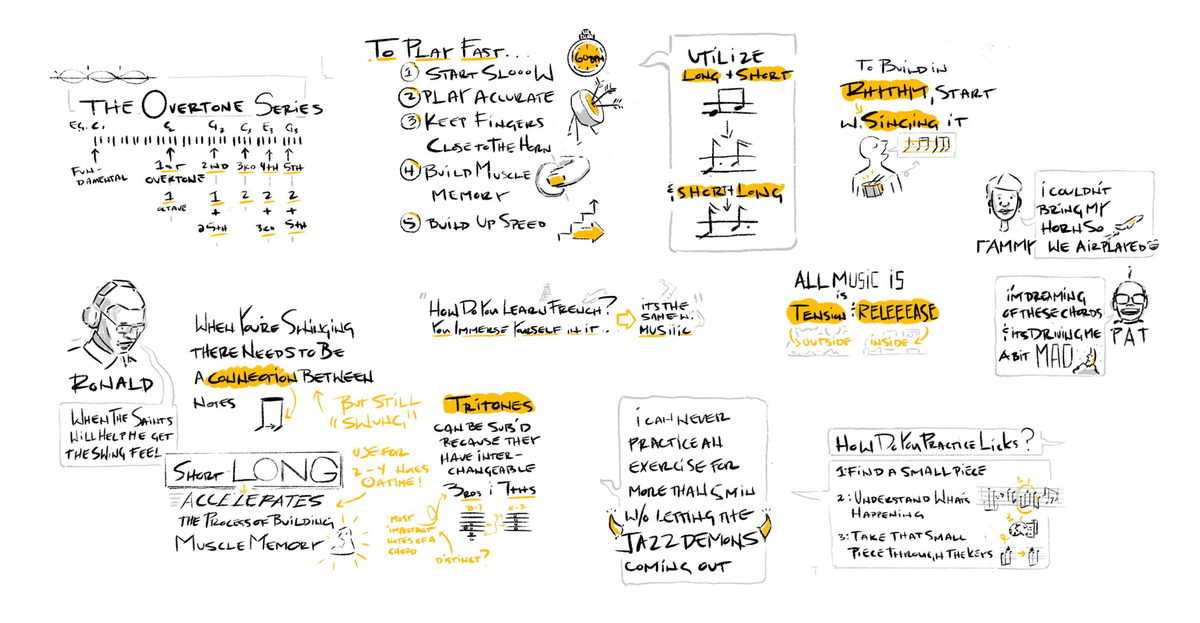 THE OVERTONE SERIES
EG. C,
C2
G2
C3
E3
G3
FUN-
DAMENTAL
1ST
OVERTONE
2ND
3RD
4TH
5TH
1
OCTAVE
1
+
2
2
+
3RD
2
+
5TH
TO PLAY FAST...
60BPM
1 START SLOOOW
2 PLAY ACCURATE
3 KEEP FINGERS
CLOSE TO THE HORN
4 BUILD MUSCLE
MEMORY
5 BUILD UP SPEED
UTILIZE
LONG + SHORT
& SHORT + LONG
TO BUILD IN
RHYTHM, START
W. SINGING IT
TAMMY
I COULDN'T
BRING MY
HORN SO
WE AIRPLAYED
RONALD
WHEN THE SAINTS
WILL HELP ME GET
THE SWING FEEL
WHEN YOU'RE SWINGING
THERE NEEDS TO BE
A CONNECTION BETWEEN
NOTES
BUT STILL
"SWUNG"
SHORT LONG
ACCELERATES
THE PROCESS OF BUILDING
MUSCLE MEMORY
USE FOR
2-4 NOTES
@ A TIME!
"HOW DO YOU LEARN FRENCH?
YOU IMMERSE YOURSELF IN IT..
IT'S THE
SAME W.
MUSIIIC"
TRITONES
CAN BE SUB'D
BECAUSE THEY
HAVE INTER-
CHANGEABLE
3RDS & 7THS
MOST
IMPORTANT
NOTES OF A
CHORD
DISTINCT?
ALL MUSIC IS
TENSION & RELEEEASE
OUTSIDE
INSIDE
PAT
I'M DREAMING
OF THESE CHORDS
& IT'S DRIVING ME
A BIT MAD
I CAN NEVER
PRACTICE AN
EXERCISE FOR
MORE THAN 5 MIN
W/O LETTING THE
JAZZ DEMONS
COMING OUT
HOW DO YOU PRACTICE LICKS?
1: FIND A SMALL PIECE
2: UNDERSTAND WHAT'S
HAPPENING
3: TAKE THAT SMALL
PIECE THROUGH THE KEYS